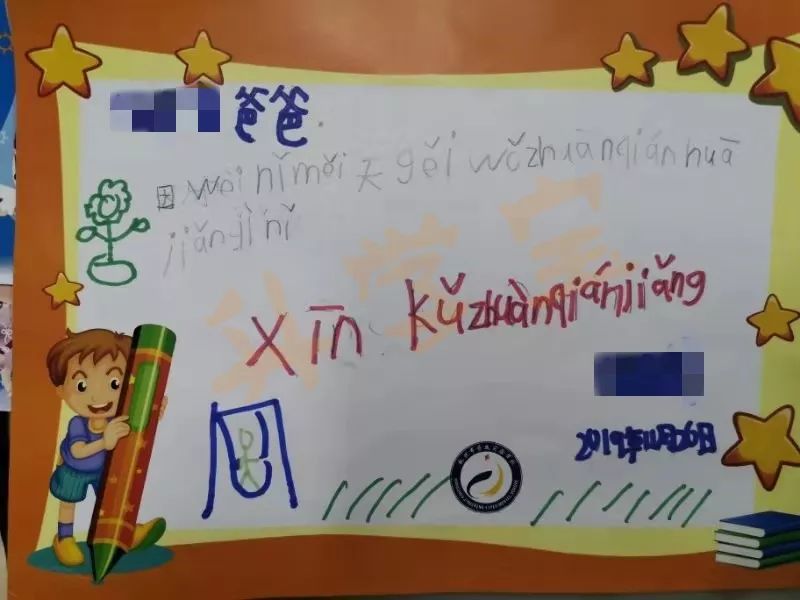 爸爸.
因 wèi nǐ měi 天 gěi wǒzhuànqiánhuā
jiǎngjì nǐ
xīn kǔzhuànqiánjiǎng
2019年11月26日